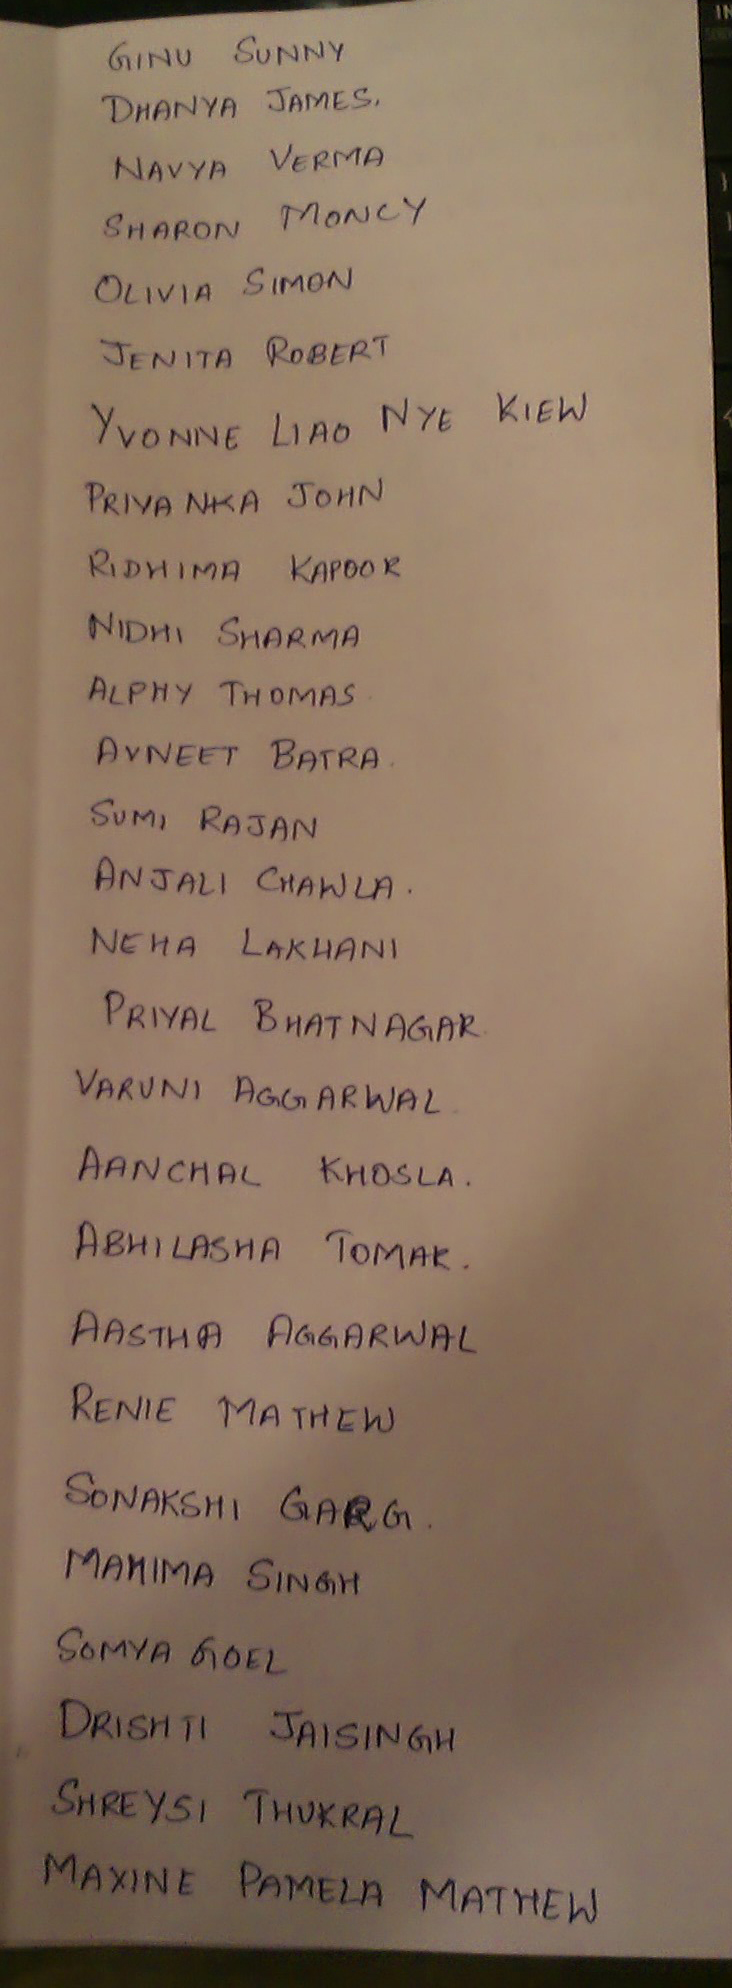 GINU SUNNY
DHANYA JAMES.
NAVYA VERMA
SHARON MONCY
OLIVIA SIMON
JENITA ROBERT
YVONNE LIAO NYE KIEW
PRIYANKA JOHN
RIDHIMA KAPOOR
NIDHI SHARMA
ALPHY THOMAS
AVNEET BATRA.
SUMI RAJAN
ANJALI CHAWLA.
NEHA LAKHANI
PRIYAL BHATNAGAR
VARUNI AGGARWAL
AANCHAL KHOSLA.
ABHILASHA TOMAR.
AASTHA AGGARWAL
RENIE MATHEW
SONAKSHI GARG.
MAHIMA SINGH
SOMYA GOEL
DRISHTI JAISINGH
SHREYSI THUKRAL
MAXINE PAMELA MATHEW